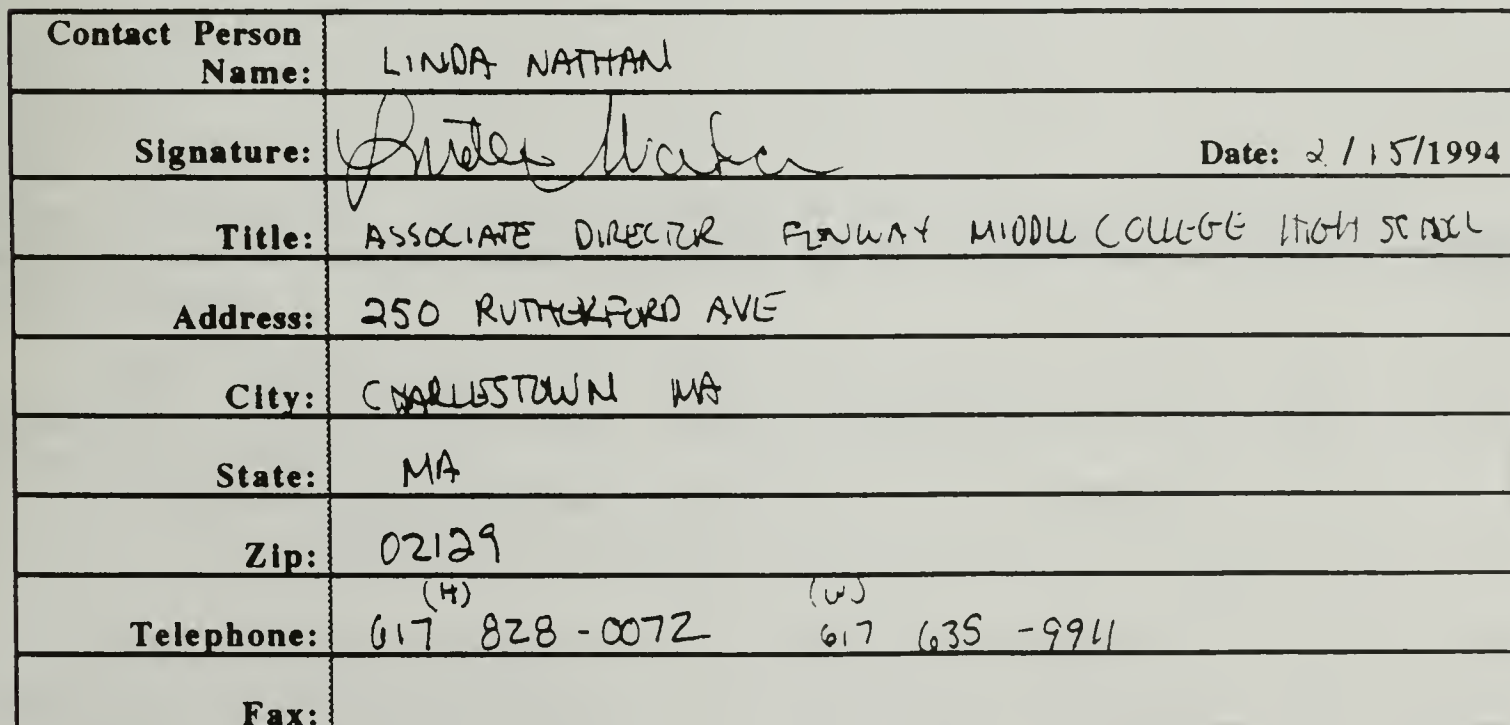 Contact Person
Name: LINDA NATHAN
Signature: Linda Nathan Date: 2/15/1994
Title: ASSOCIATE DIRECTOR FENWAY MIDDLE COLLEGE HIGH SCHOOL
Address: 250 RUTHERFORD AVE
City: CHARLESTOWN MA
State: MA
Zip: 02129
(H) (W)
Telephone: 617 828-0072 617 635-9911
Fax: